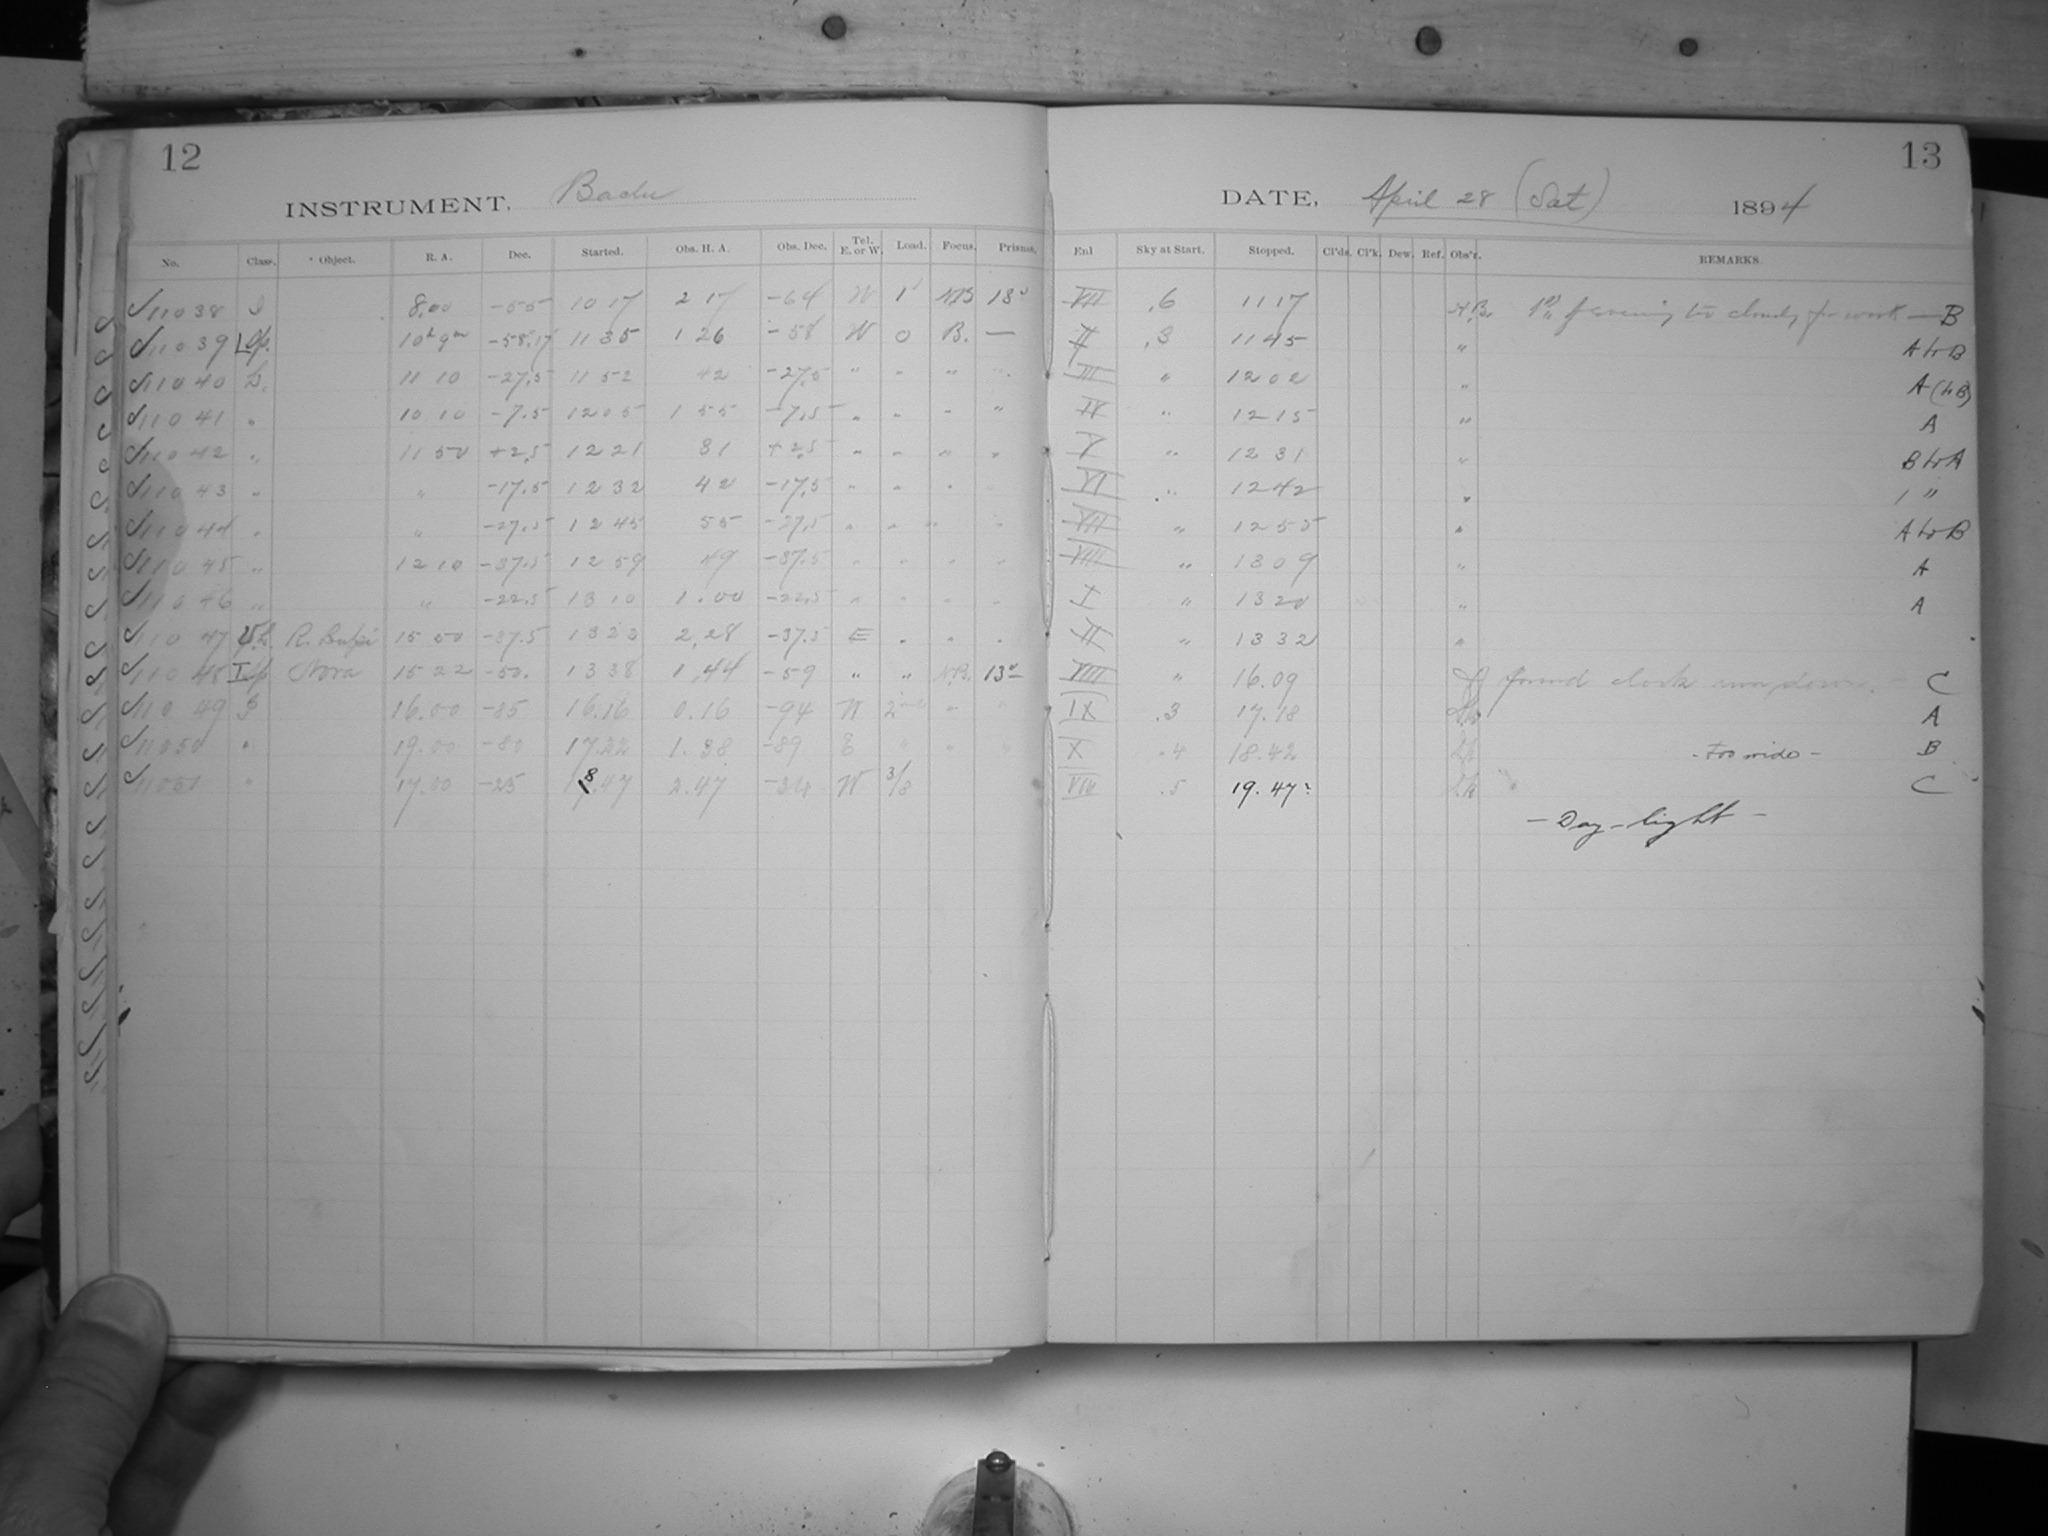 12
INSTRUMENT, Bache
No. Class. Object. R. A. Dec. Started. Obs. H. A. Obs. Dec. Tel. E. or W. Load. Focus. Prisms.
11038 8.00 -55 10 17 2 17 -64 W 1
11039 10h 9m -58.17 11 35 1 26 -58 W 0 B. —
11040 11 10 -27.5 11 52 42 -27.5 " " " "
11041 " 10 10 -7.5 12 05 1 55 -7.5 " " " "
11042 " 11 50 +2.5 12 21 31 +2.5 " " " "
11043 " " -17.5 12 32 42 -17.5 " " "
11044 " " -27.5 12 45 55 -27.5 " " " "
11045 " 12 10 -37.5 12 59 49 -37.5 " " " "
11046 " " -22.5 13 10 1.00 -22.5 " " " "
11047 R. 15 50 -37.5 13 22 2.28 -37.5 E " " "
11048 Nova 15 22 -50. 13 38 1.44 -59 " "
11049 16.00 -85 16.16 0.16 -94 W 2 " "
11050 " 19.00 -80 17.22 1.38 -89 E " " "
11051 " 17.00 -25 18.47 2.47 -34 W
13
DATE, April 28 (Sat) 1894
Enl Sky at Start. Stopped. Cl'ds. Cl'k. Dew. Ref. Obs'r. REMARKS.
VII .6 11 17 of evening too cloudy for work — B
II .3 11 45 " A to B
III " 12 02 " A (to B)
IV " 12 15 " A
V " 12 31 " B to A
VI " 12 42 " "
VII " 12 55 " A to B
VIII " 13 09 " A
I " 13 20 " A
II " 13 32 "
VIII " 16.09 found clock run down. C
IX .3 17.18 A
X .4 18.42 - Too wide - B
VIII .5 19.47: C
— Day-light —